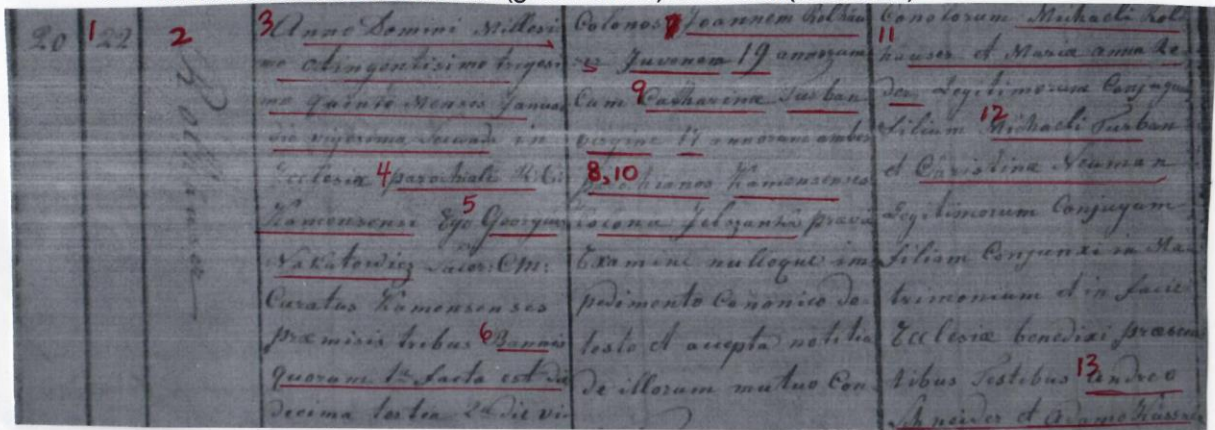 20 1 22 2
Rollhauser
3 Anno Domini Millesi
mo octingentisimo trigesi
mo quinto Mensis Januar
die vigesima secunda in
Ecclesia 4 parochiali R: C:
Kamensensi Ego 5 Georgius
Nakutowicz Sacor: CM:
Curatus Kamensenses
præmisis tribus 6 Bannis
quorum 1ma facta est die
decima tertia 2da die vi
Colonos 7 Joannem Rolhau
Juvenem 19 annorum
Cum 9 Catharina Turban
virgine 17 annorum ambos
8,10 parochianos Kamensenses
Colona prævio
Examine nulloque im
pedimento Canonico de
tecto et accepta notitia
de illorum mutuo Con
Consolorum Michaeli Roll
11 hauser et Maria anna Le
der Legitimorum Conjugum
Filium 12 Michaeli Turban
et Christina Neuman
Legitimorum Conjugum
Filiam Conjunxi in Ma
trimonium et in facie
Ecclesiæ benedixi præsen
tibus Testibus 13 Andrea
Schneider et Adamo